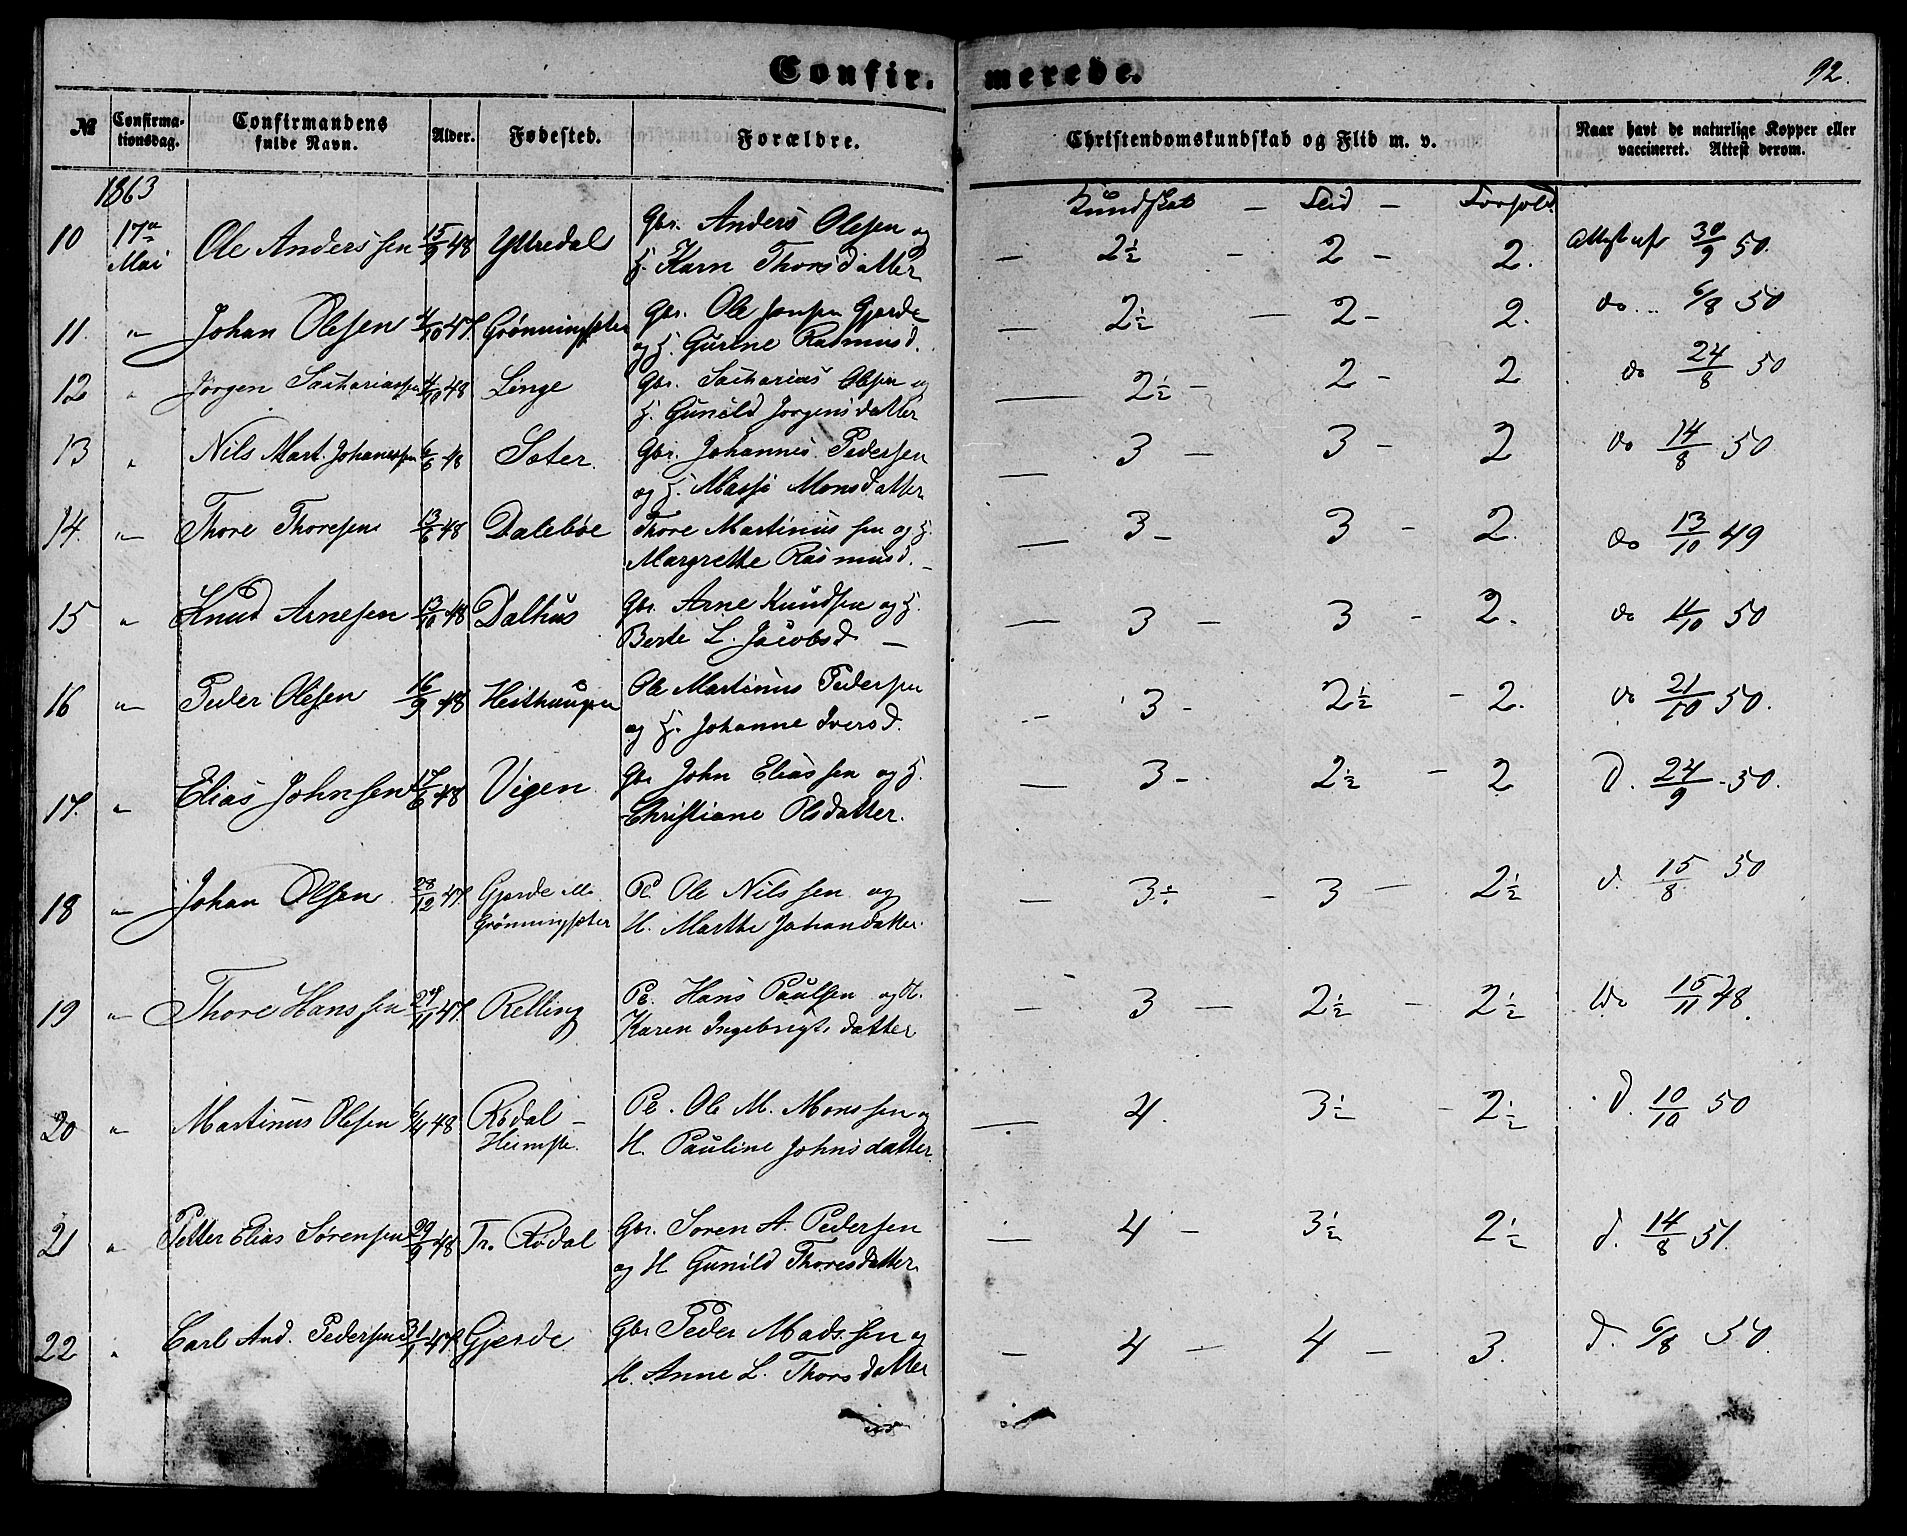 Confirmerede.
92.
№ Confirmationsdag. Confirmandens fulde Navn. Alder. Fødested. Forældre. Christendomskundskab og Flid m. v. Naar havt de naturlige Kopper eller vaccineret. Attest derom.
1863 Kundskab – Flid – Forhold
10 17de Mai Ole Anderssen 15/9 48 Yttredal Gbr. Anders Olesen og H. Karn Thorsdatter – 2½ – 2 – 2. Attest af 30/9 50.
11. " Johan Olesen /10 47. Grønningsæter Gbr. Ole Jonsen Gjerde og H. Gurine Rasmusd. – 2½ – 2 – 2. do 6/8 50
12 " Jørgen Sachariassen /10 48 Linge Gbr. Sacharias Olsen og H. Gunild Jørgensdatter – 2½ – 2 – 2 do 24/8 50
13 " Nils Mart. Johanessen 6/6 48 Sæter. Gbr. Johannes Pedersen og H. Massi Monsdatter – 3 – 3 – 2 do 14/8 50
14. " Thore Thoresen 13/6 48 Dalebøe Thore Martinussen og H. Margrethe Rasmusd. – 3 – 3 – 2. do 13/10 49
15 " Knud Arnesen 13/10 48 Dalhus Gbr. Arne Knudsen og H. Berte L. Jacobsd. – 3 – 3 – 2. do 11/10 50
16 " Peder Olesen 16/9 48 Hesthaugen Ole Martinus Pedersen og H. Johanne Iversd. – 3 – 2½ – 2. do 21/10 50.
17. " Elias Johnsen 17/6 48 Vigen Gbr John Eliassen og H. Christiane Olsdatter. – 3 – 2½ – 2 d. 24/9 50.
18 " Johan Olsen 28/12 47. Gjerde ell. Grønningsæter Pl. Ole Nilssen og H. Marthe Johandatter – 3÷ – 3 – 2½ d. 15/8 50
19 " Thore Hanssen 27/11 47. Relling Pl. Hans Paulsen og H. Karen Ingebrigtsdatter – 3 – 2½ – 2½ do 15/11 48.
20 " Martinus Olesen 6/4 48 Rødal – Pl. Ole M. Monssen og H. Pauline Johnsdatter. – 4. 3½ – 2½ d. 10/10 50
21 " Petter Elias Sørensen 29/9 48 Tr. Rødal Gbr. Søren A. Pedersen og H Gunild Thoresdatter. – 4 – 3½ 2½ d. 14/8 51.
22 " Carl And. Pedersen 31/1 47. Gjerde Gbr Peder Madssen og H. Anne L. Thorsdatter – 4 – 4 – 3. d. 6/8 50.